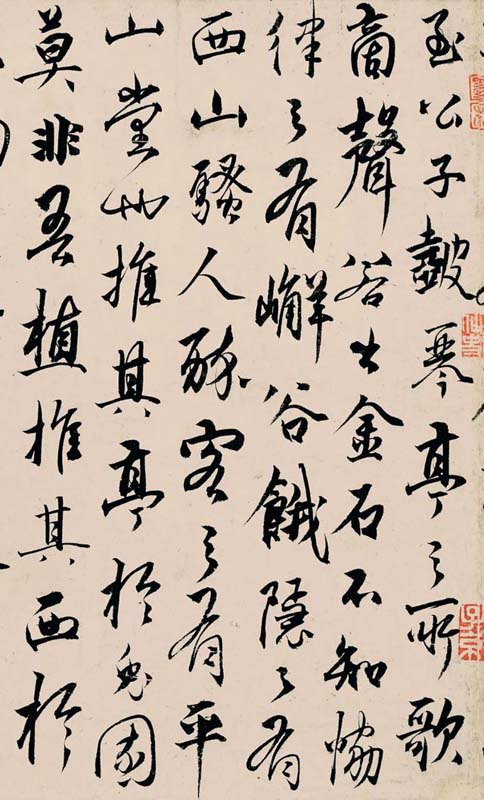 至公子皷琴亭之所歌
商聲若出金石不知協
律之有嶰谷餓隱之有
西山騷人醉客之有平
山堂也推其亭於兔園
莫非吾植推其西於